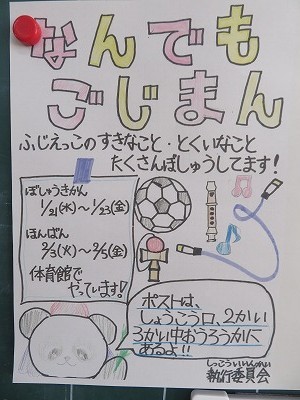 なんでも
ごじまん
ふじえっこのすきなこと・とくいなこと
たくさんぼしゅうしてます!
ぼしゅうきかん
1/21(水)～1/23(金)
ほんばん
2/3(火)～2/5(金)
体育館で
やっています!
ポストは、
しょうこう口、2かい
3かい中おうろうかに
あるよ!!
しっこういいんかい
執行委員会